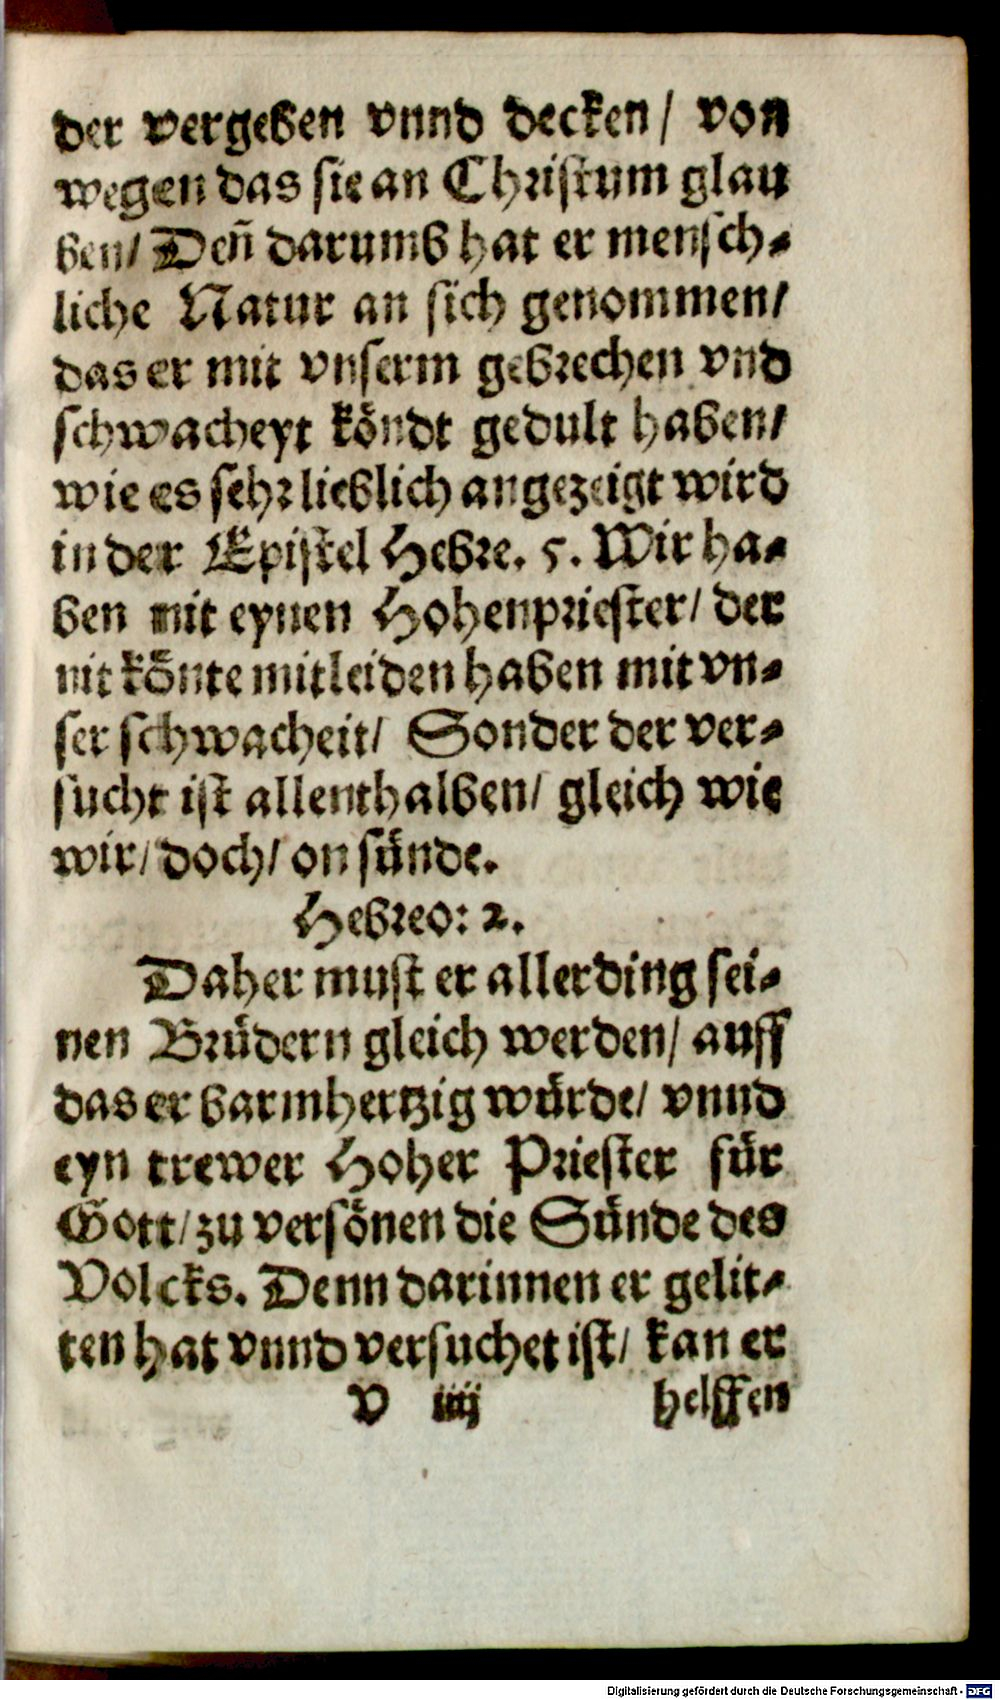 der vergeben vnnd decken/ von
wegen das sie an Christum glau
ben/ Deñ darumb hat er mensch-
liche Natur an sich genommen/
das er mit vnserm gebrechen vnd
schwacheyt köndt gedult haben/
wie es sehr lieblich angezeigt wird
in der Epistel Hebre. 5. Wir ha-
ben nit eynen Hohenpriester/ der
nit könte mitleiden haben mit vn-
ser schwacheit/ Sonder der ver-
sucht ist allenthalben/ gleich wie
wir/ doch/ on sünde.
Hebreo: 2.
Daher must er allerding sei-
nen Brüdern gleich werden/ auff
das er barmhertzig würde/ vnnd
eyn trewer Hoher Priester für
Gott/ zu versönen die Sünde des
Volcks. Denn darinnen er gelit-
ten hat vnnd versuchet ist/ kan er
v iiij helffen
Digitalisierung gefördert durch die Deutsche Forschungsgemeinschaft - DFG